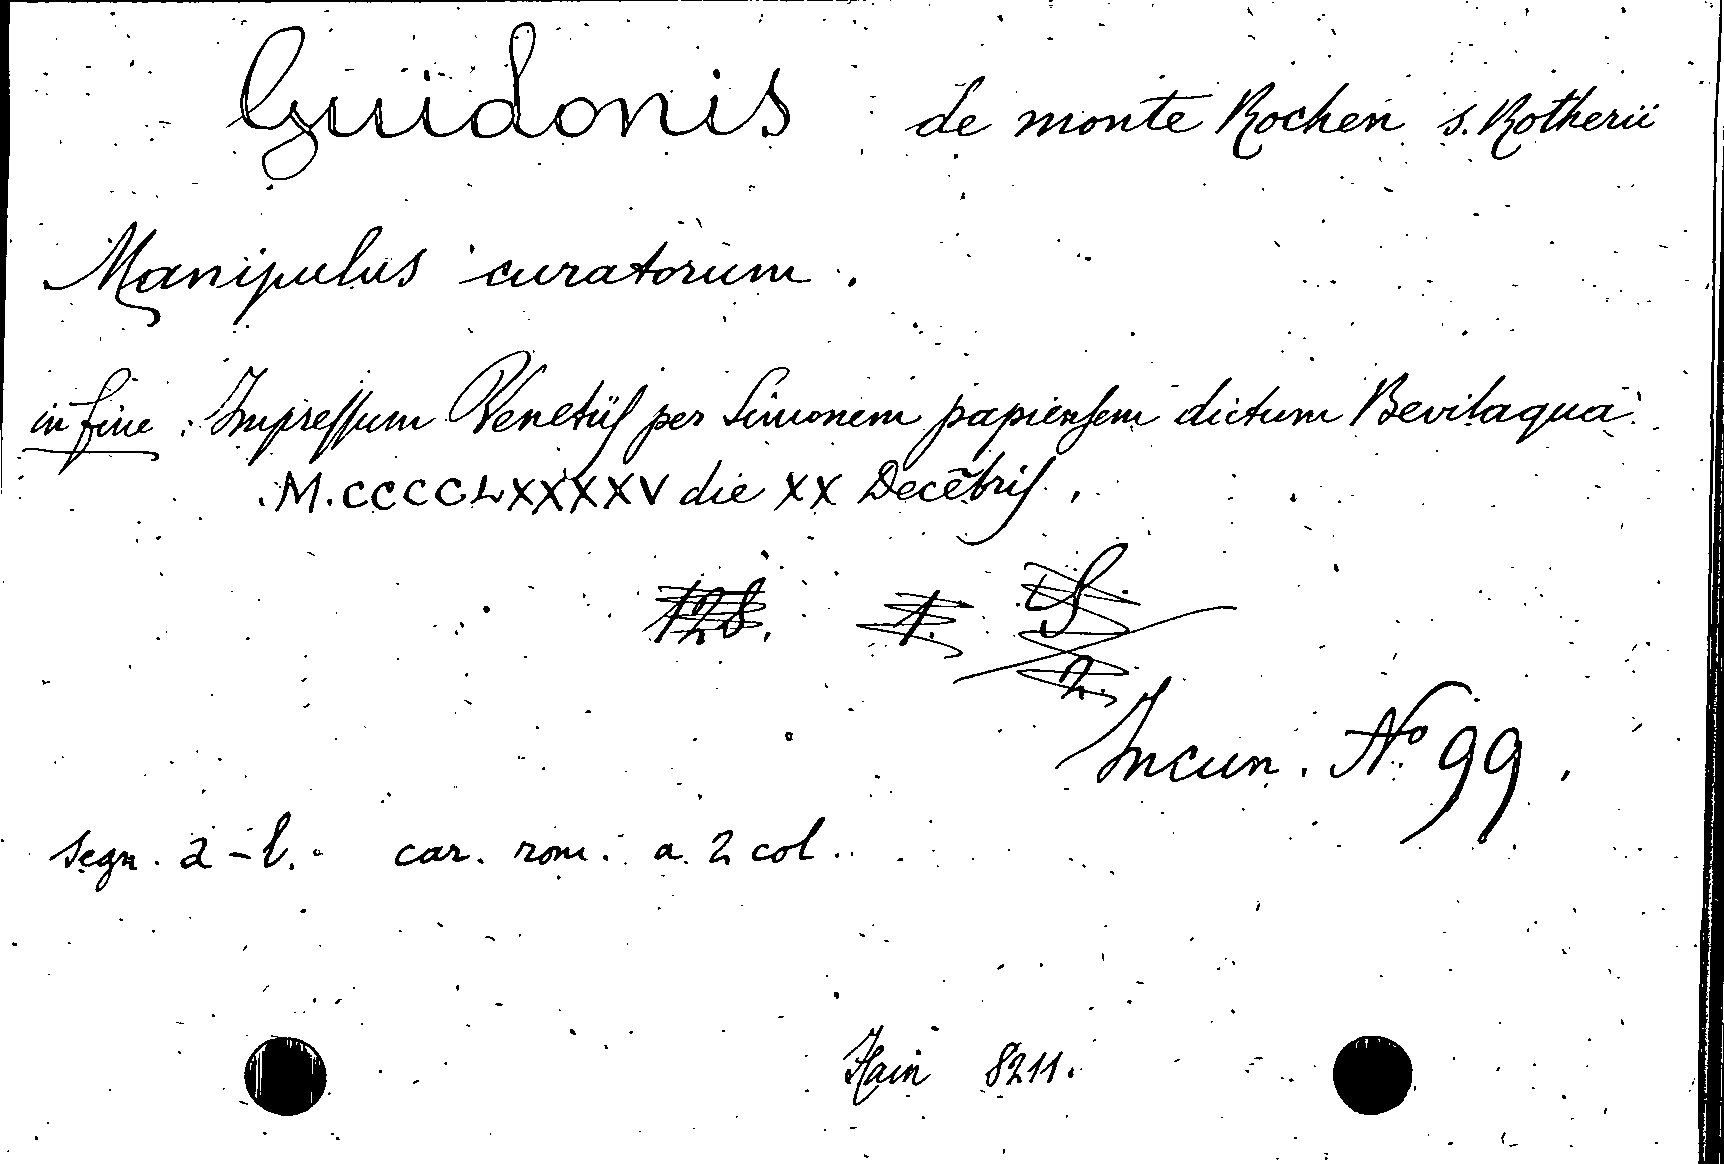 Guidonis de monte Rochen s. Rotherii
Manipulus curatorum.
in fine: Impressum Venetiis per Simonem papiensem dictum Bevilaqua.
M.CCCCLXXXXV die XX Decēbris.
128. 1. S
2.
Incun. No 99.
segn. a-l. car. rom. a 2 col.
Hain 8211.